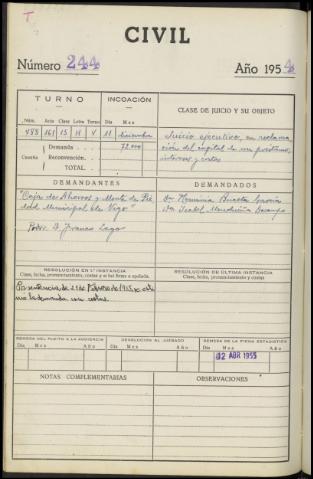 T
CIVIL
Número 244 Año 1954
TURNO INCOACIÓN CLASE DE JUICIO Y SU OBJETO
Núm. Año Clase Letra Turno Día Mes
488 161 15 H 4 11 diciembre Juicio ejecutivo, en reclama
Cuantía Demanda 72.000 ción del capital de un préstamo,
Reconvención intereses y costas
TOTAL
DEMANDANTES DEMANDADOS
"Caja de Ahorros y Monte de Pie
dad Municipal de Vigo"
Dr. Herminia
Dr. Isabel
Proc. D. Franco Lago
RESOLUCIÓN EN 1.ª INSTANCIA RESOLUCIÓN DE ÚLTIMA INSTANCIA
Clase, fecha, pronunciamiento, costas y si fué firme o apelada. Clase, fecha, pronunciamiento y costas
Por sentencia de 21 de Febrero de 1955 se esti
ma la demanda con costas
REMESA DEL PLEITO A LA AUDIENCIA DEVOLUCIÓN AL JUZGADO REMESA DE LA FICHA ESTADÍSTICA
Día Mes Año Día Mes Año Día Mes Año
02 ABR 1955
NOTAS COMPLEMENTARIAS OBSERVACIONES